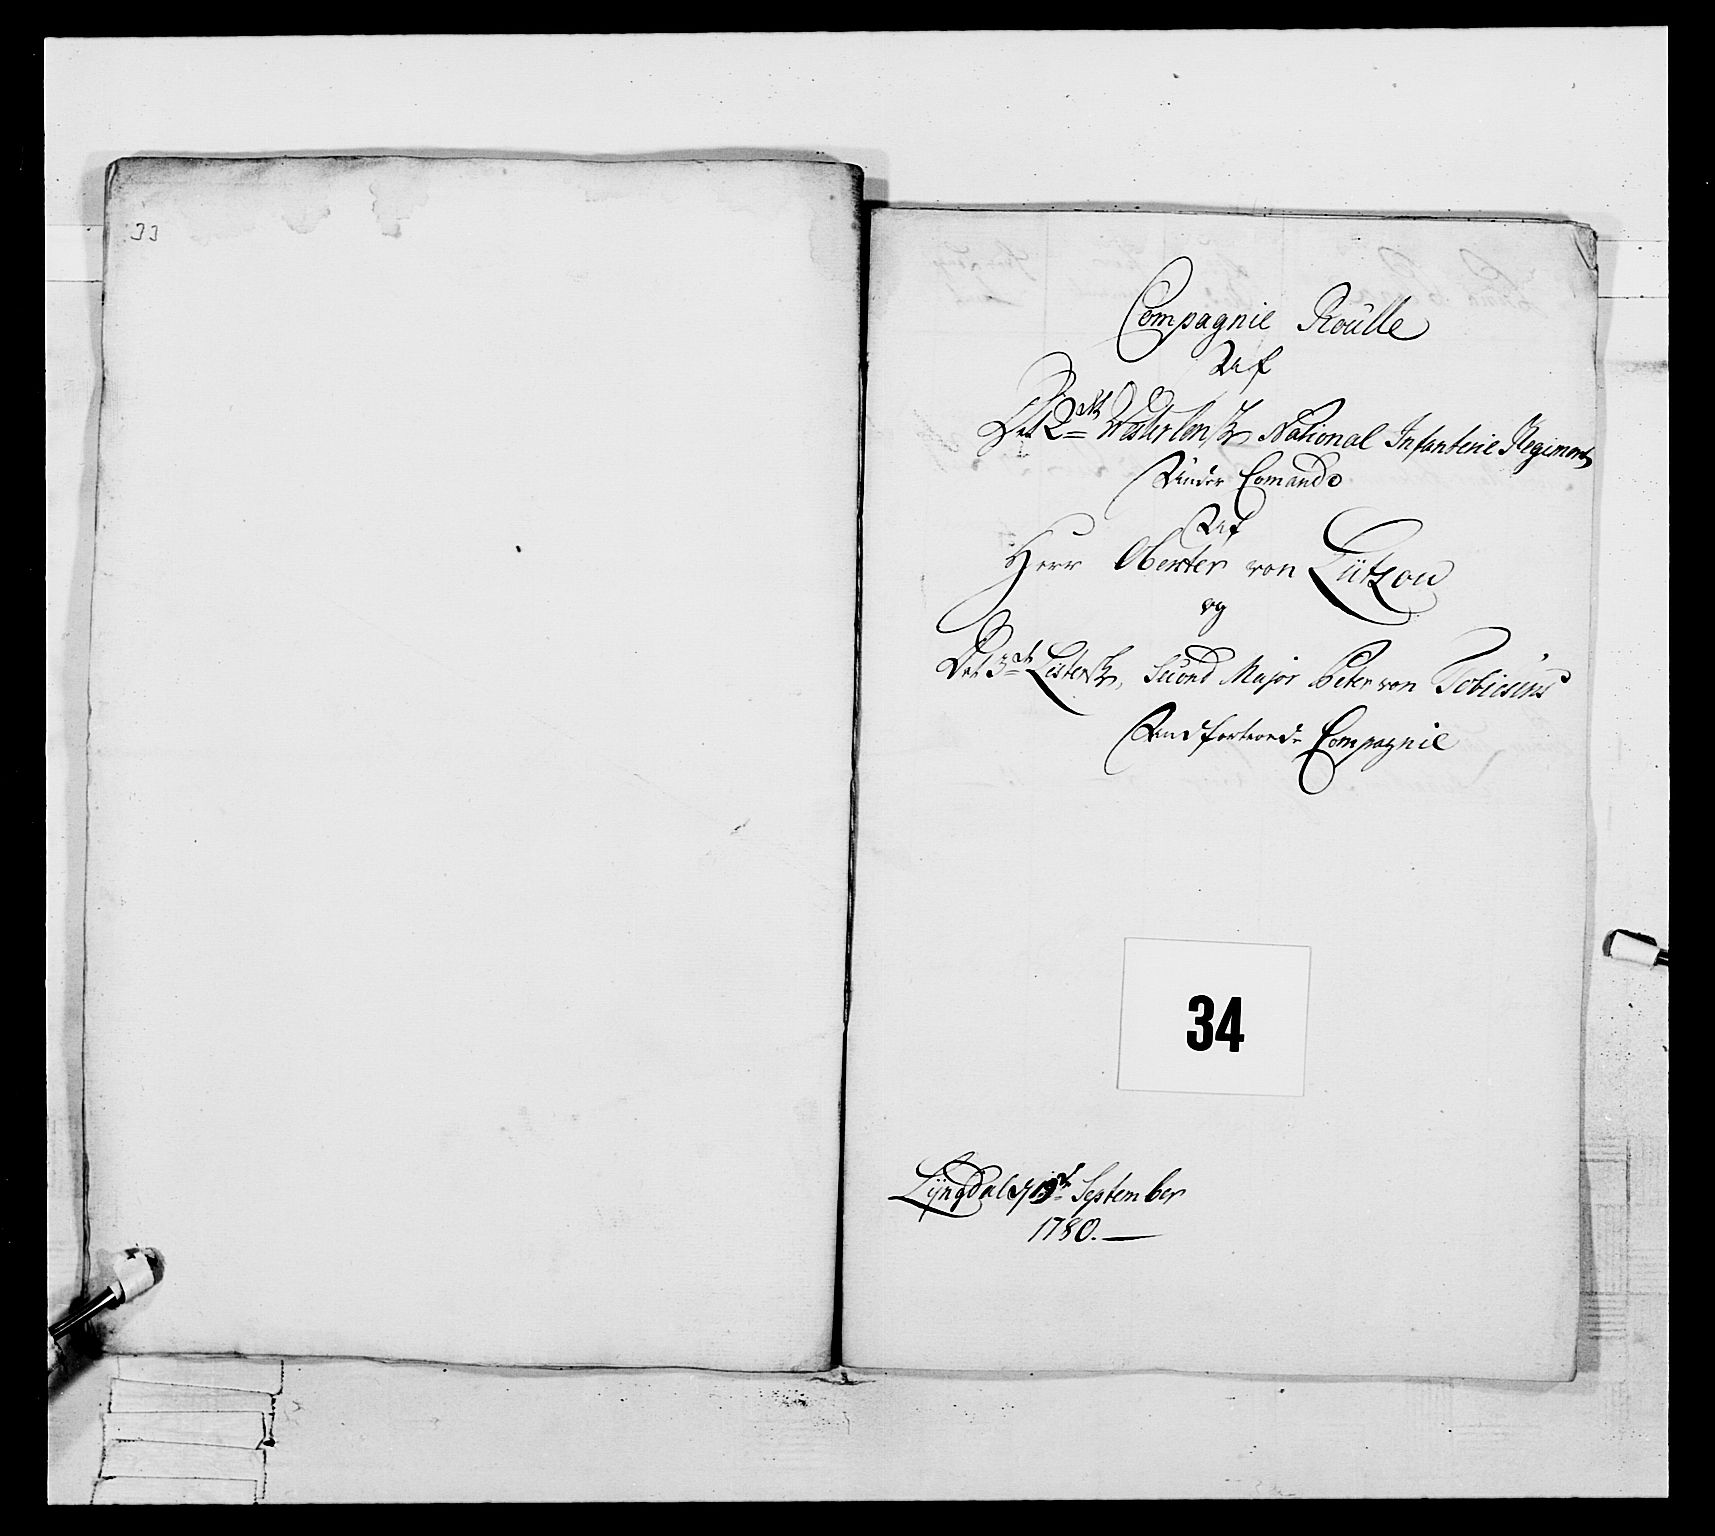 33
Compagnie Roülle
Af
Det 2det Westerlenske National Infanterie Regiment
Under Comando
Af
Herr Oberster von Lützou
og
Det 3die Listerske, Second Major Peter von Tobiesens
Andførtroede Compagnie
34
Lÿngdal d 19de September
1780.